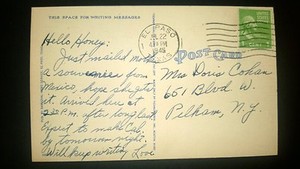 THIS SPACE FOR WRITING MESSAGES
Hello Honey:
Just mailed mother
a souvenir from
Mexico, hope she gets
it. Arrived here at
2 P.M. after long
Expect to make Cal.
by tomorrow night.
Will keep writing Love
EL PASO
22
PM
1945
TEXAS
POST CARD
Mrs Doris Cohan
651 Blvd W.
Pelham, N.Y.